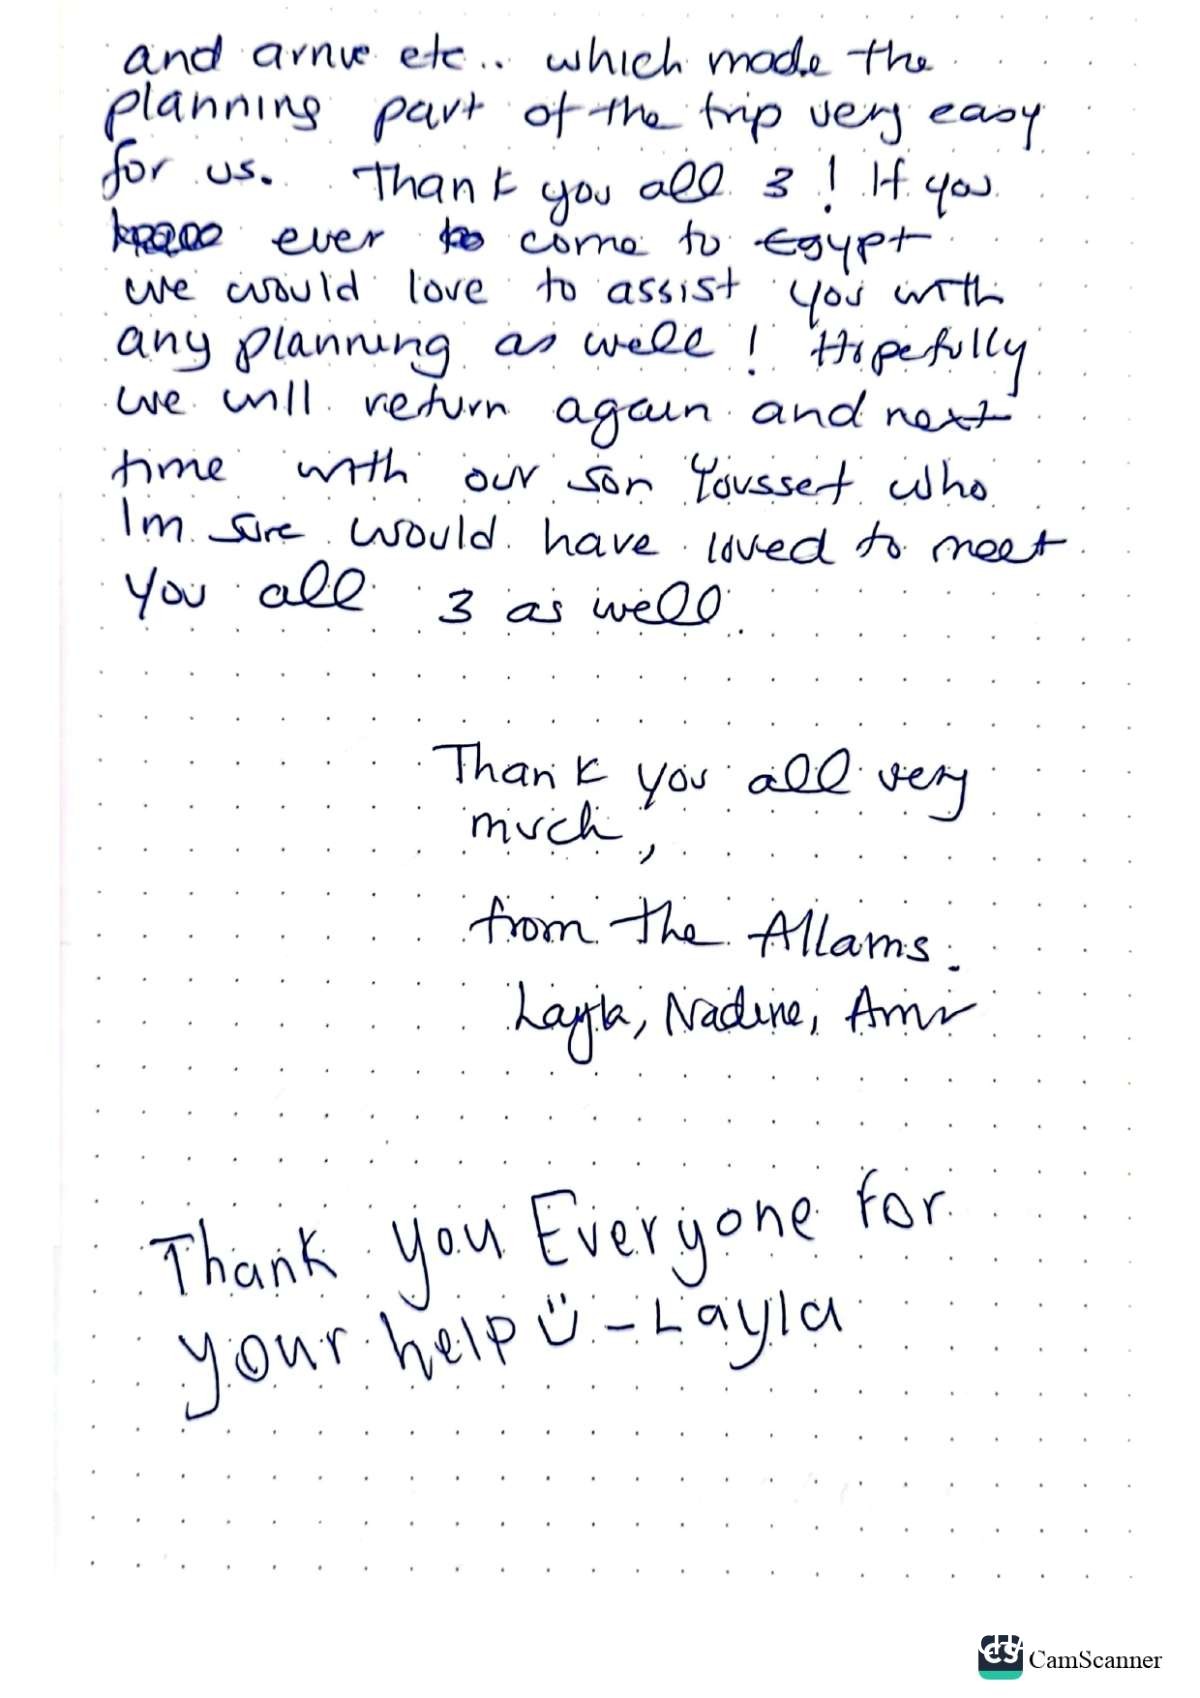 and arrive etc.. which made the
planning part of the trip very easy
for us. Thank you all 3! If you
ever to come to Egypt
we would love to assist you with
any planning as well! Hopefully
we will return again and next
time with our son Youssef who
Im sure would have loved to meet
you all 3 as well.
Thank you all very
much,
from the Allams.
Layla, Nadine, Amr
Thank you Everyone for
your help -Layla
CS CamScanner